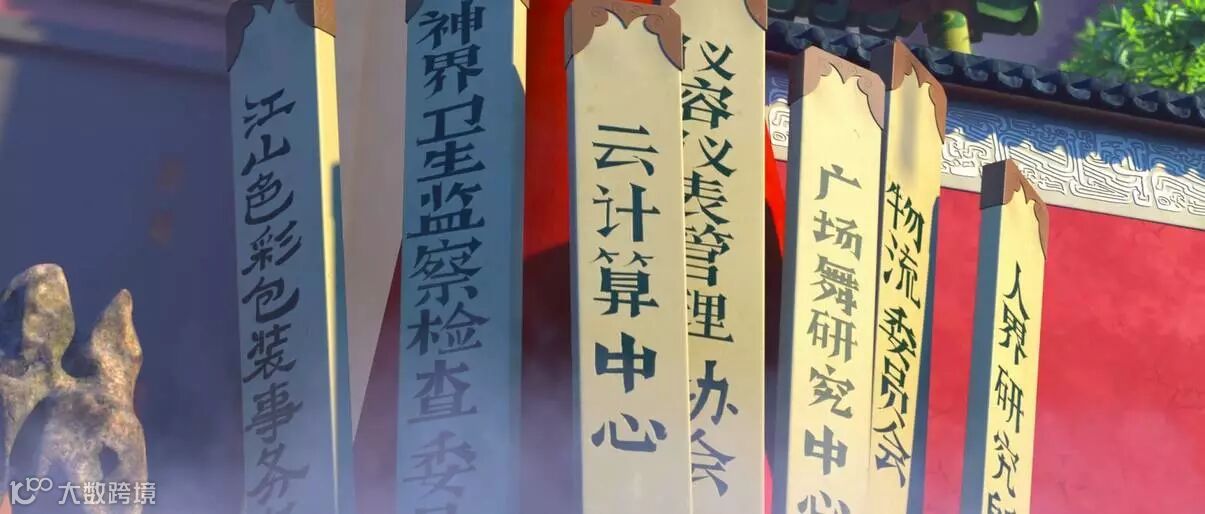 江山色彩包装事务
神界卫生监察检查委
云计算中心
仪容仪表管理办会
广场舞研究中心
物流委员会
人界研究
大数跨境